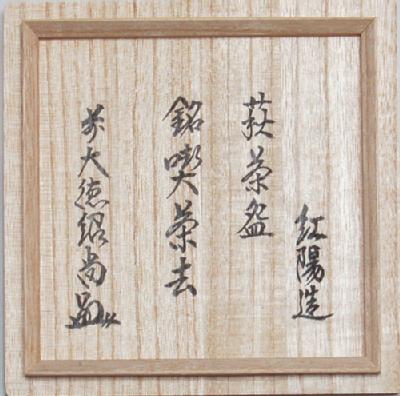 紅陽造
萩茶盌
銘喫茶去
前大徳紹尚